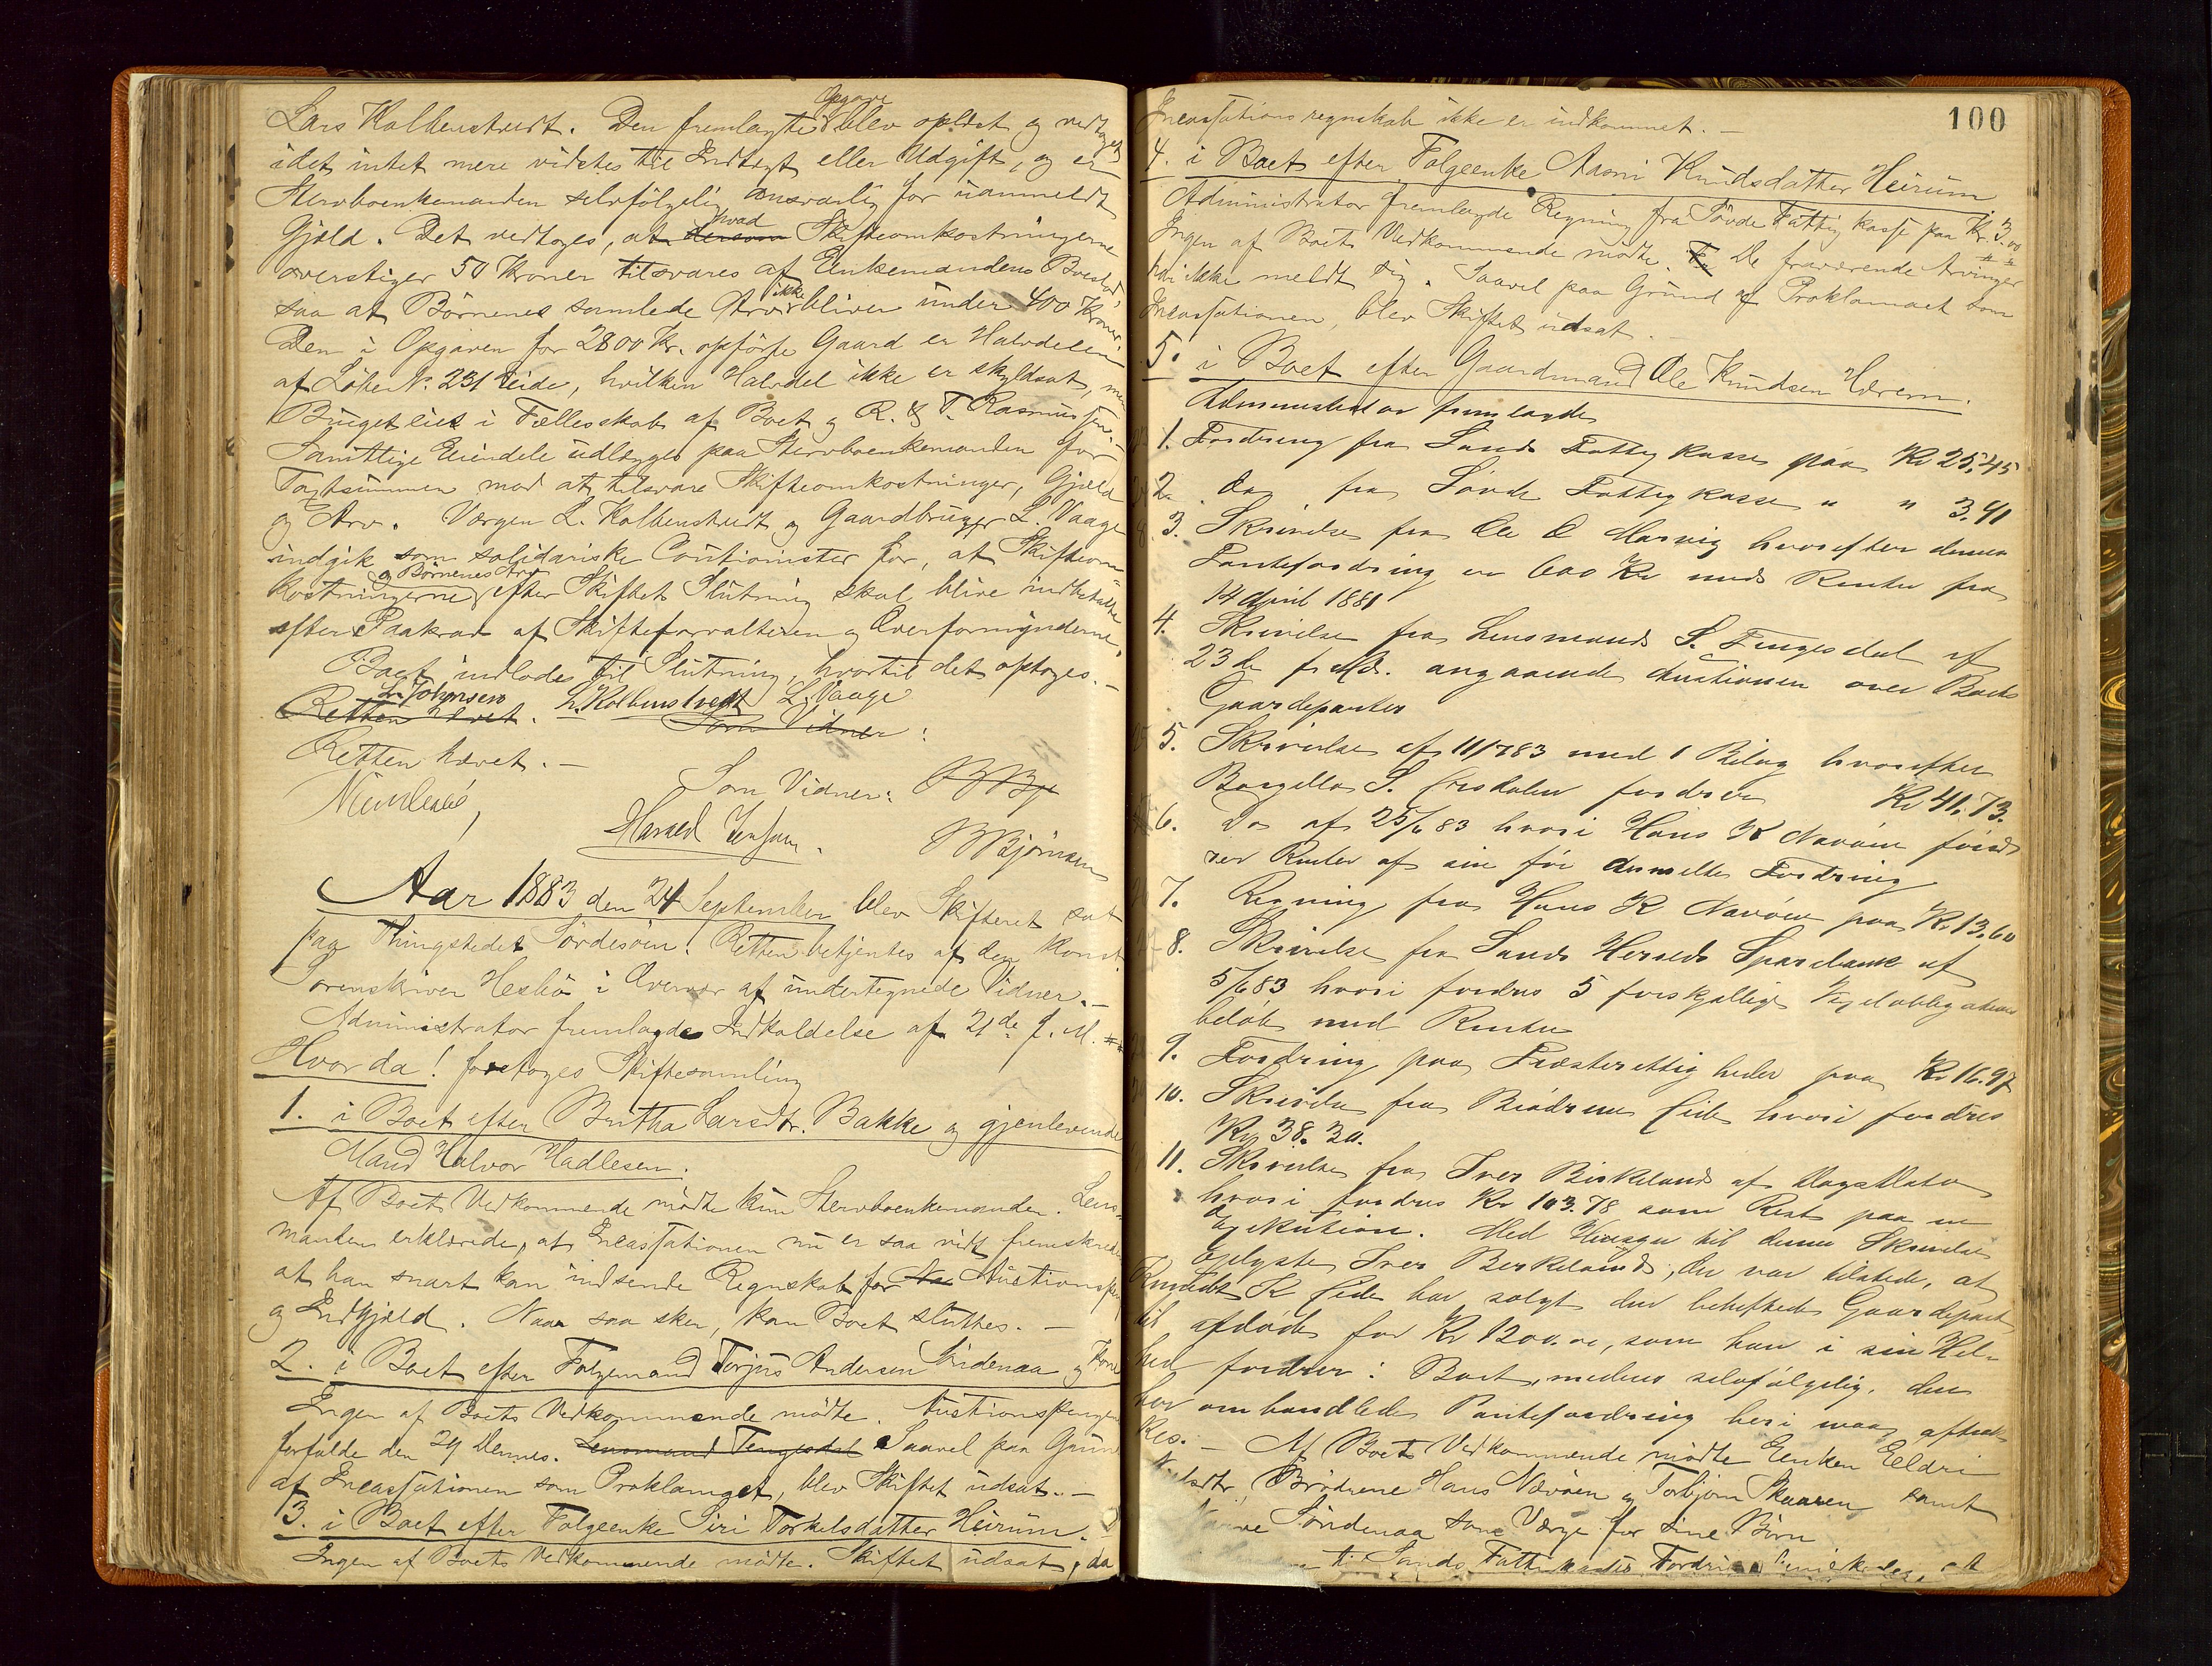 Lars Kolbenstvedt. Den fremlagte Opgave blev oplæst og vedtoges
idet intet mere vidstes til Indtægt eller Udgift, og er
Stervboenkemanden selvfølgelig ansvarlig for uanmeldt
Gjæld. Det vedtoges, at dersom hvad Skifteomkostningerne
overstiger 50 Kroner tilsvares af Enkemandens Boeslod,
saa at Børnenes samlede Arv ikke bliver under 400 Kroner.
Den i Opgaven for 2800 Kr. opførte Gaard er Halvdelen
af Løbe N. 231 Eide, hvilken Halvdel ikke er skyldsat, men
Bruget eies i Fællesskab af Boet og R. & T. Rasmussen.
Samtlige Eiendele udlægges paa Stervboenkemanden for
Taxtsummen mod at tilsvare Skifteomkostninger, Gjæld
og Arv. Værgen L. Kolbenstvedt og Gaardbruger L. Vaage
indgik som solidariske Cautionister for, at Skifteom
kostningerne og Børnenes Arv efter Skiftets Slutning skal blive indbetalte
efter Paakrav af Skifteforvalteren og Overformynderne.
Boet indlodes til Slutning, hvortil det optoges. –
L. Johnsen L. Kolbenstvedt L. Vaage
Retten hævet. Som Vidner:
Retten hævet. –
Som Vidner: B Bj
Harald Jensen. B Bjørnsen
Aar 1883 den 24 September blev Skifteret sat
paa Thingstedet Sørdesøen. Retten betjentes af den konst.
Sorenskriver Hesbø i Overvær af undertegnede Vidner. –
Administrator fremlagde Indkaldelse af 21de f. M.
Hvor da! foretoges Skiftesamling
1. i Boet efter Britha Larsdtr. Bakke og gjenlevende
Mand Halvor Hadlesen.
Af Boets Vedkommende mødte kun Stervboenkemanden. Lens=
manden erklærede, at Incassationen nu er saa vidt fremskreden
at han snart kan indsende Regnskab for Auctionspen
og Indgjæld. Naar saa sker, kan Boet sluttes. –
2. i Boet efter Folgemand Torjus Andersen Søndenaa og Kone
Ingen af Boets Vedkommende mødte. Auctionspengene
forfaldt den 29 Dennes. Lensmand Tengesdal Saavel paa Grund
af Incassationen som Proklamaet, blev Skiftet udsat. –
3. i Boet efter Folgeenke Siri Torkelsdatter Heirum.
Ingen af Boets Vedkommende mødte. Skiftet udsat, da
100
Incassations regnskab ikke er indkommet. –
4. i Boet efter Folgeenke Aasni Knudsdatter Heirum
Administrator fremlagde Regning fra Søvde Fattigkasse paa Kr. 3.00
Ingen af Boets Vedkommende mødte. De fraværende Arvinger
har ikke meldt sig. Saavel paa Grund af Proklamaet som
Incassationen, blev Skiftet udsat.
5. i Boet efter Gaardmand Ole Knudsen Hærem.
Administrator fremlagde
1. Fordring fra Sands Fattigkasse paa Kr 25,45
2. do fra Søvde Fattigkasse " " 3.91
3. Skrivelse fra Ole O Marvig hvorefter dennes
Pantefordring er 600 Kr med Renter fra
14 April 1881
4. Skrivelse fra Lensmand S. Tengesdal af
23de f. Md. angaaende Auctionen over Boets
Gaardeparter
5. Skrivelse af 11/7 83 med 1 Bilag hvorefter
fordrer Kr 41.73.
6. Do af 25/6 83 hvori Hans K Navøen fond
rer Renter af sin før anmeldte Fordring
7. Regning fra Hans K Navøen paa Kr 13.60
8. Skrivelse fra Sands Herreds Sparebank af
5/6 83 hvori fordres 5 forskjellige Vexelobligations
beløb med Renter
9. Fordring paa Præsterettigheder paa Kr 16.97
10. Skrivelse fra Brødrene Eide hvori fordres
Kr 38.30.
11. Skrivelse fra Iver Birkeland af Dags Dato
hvori fordres Kr 103.78 som Rest paa en
Exekution. Med Hensyn til denne Skrivelse
oplyste Iver Birkeland, der var tilstede, at
K Eide har solgt den beheftede Gaardepart
til afdøde for Kr 1200.00, som han i sin Hel-
hed fordrer i Boet, medens selvfølgelig den
her omhandlede Pantefordring heri maa aftræk
kes. – Af Boets Vedkommende mødte Enken Eeldri
Brødrene Hans Navøen og Torbjørn Skaaren samt
Søndenaa som Værge for sine Børn
til Sands Fattigkasses Fordring